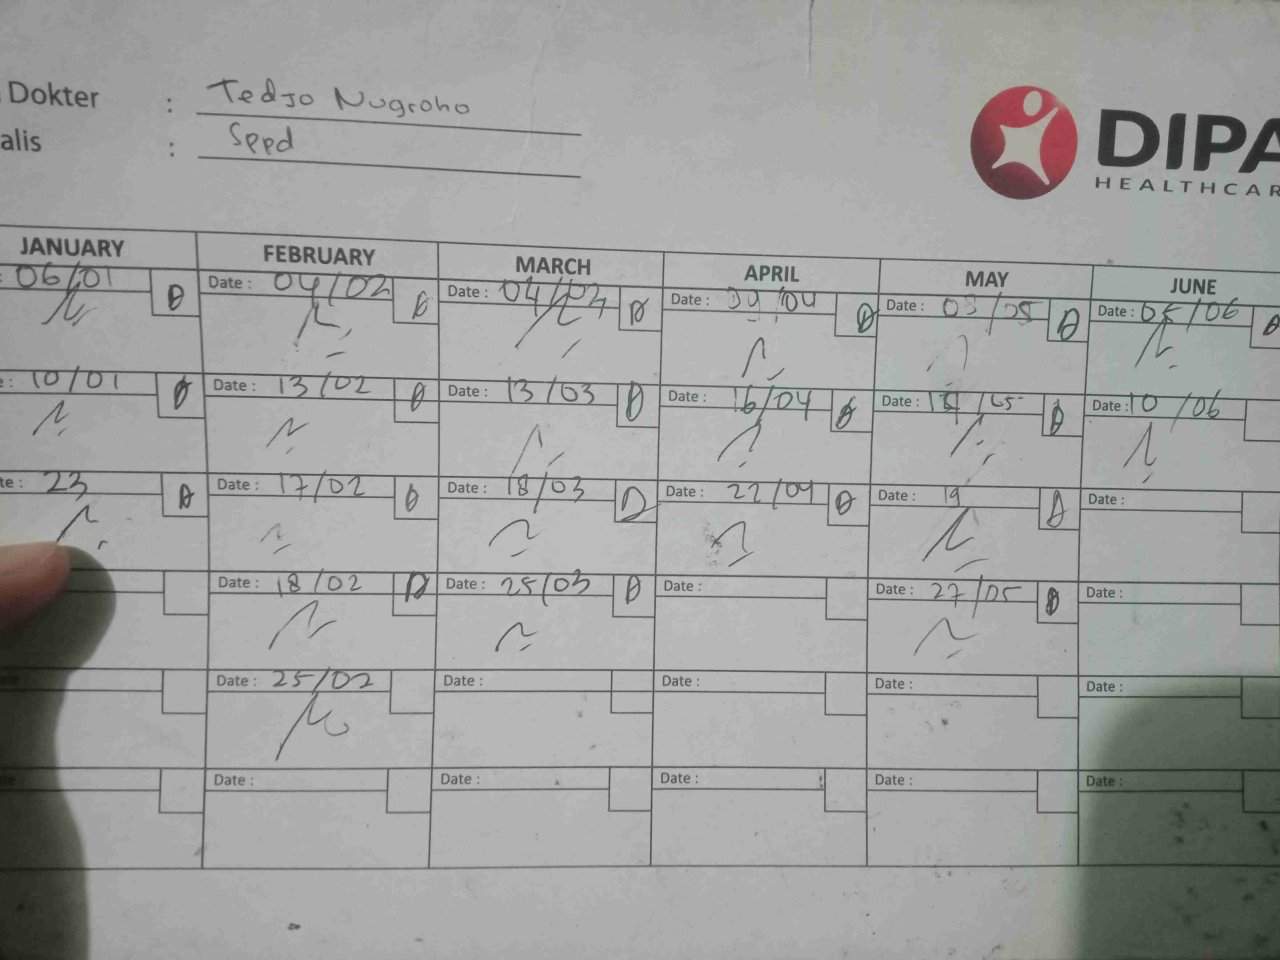 Dokter : Tedjo Nugroho
alis : Sppd
DIPA
HEALTHCAR
JANUARY FEBRUARY MARCH APRIL MAY JUNE
: 06/01 D Date : 04/02 D Date : 04/03 D Date : 04/04 D Date : 05/05 D Date : 05/06 D
e : 10/01 D Date : 13/02 D Date : 13/03 D Date : 16/04 D Date : /05 D Date : 10/06
te : 23 D Date : 17/02 D Date : 18/03 D Date : 22/04 D Date : 19 D Date :
Date : 18/02 D Date : 25/03 D Date : Date : 27/05 D Date :
Date : 25/02 Date : Date : Date : Date :
Date : Date : Date : Date : Date :